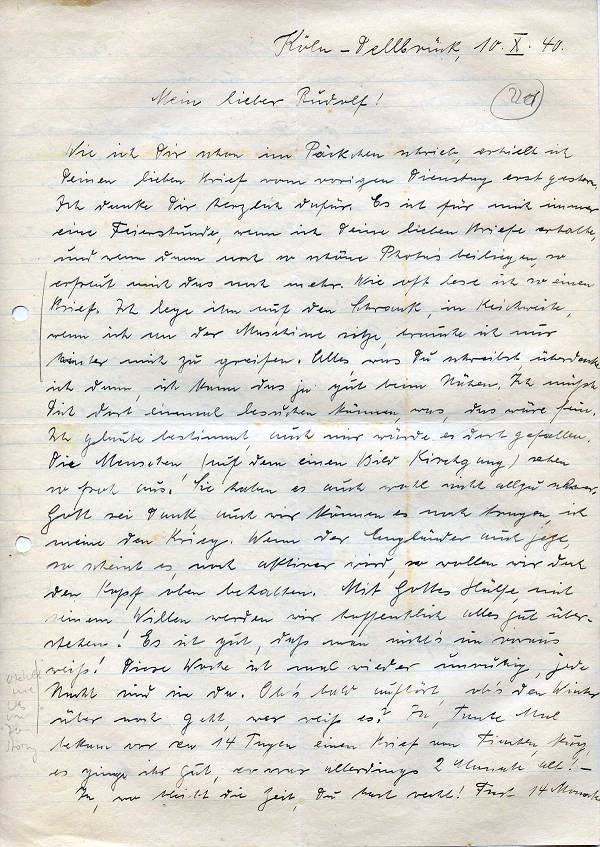 Köln-Dellbrück, 10.X.40.
Mein lieber Rudolf!
Wie ich Dir schon im Päckchen schrieb, erhielt ich
Deinen lieben Brief vom vorigen Dienstag erst gestern.
Ich danke Dir herzlich dafür. Es ist für mich immer
eine Feierstunde, wenn ich Deine lieben Briefe erhalte,
und wenn dann noch so schöne Photos beiliegen, so
erfreut mich das noch mehr. Wie oft lese ich so einen
Brief. Ich lege ihn auf den Schrank, in Reichweite,
wenn ich an der Maschine sitze, brauche ich nur
hinter mich zu greifen. Alles, was Du schreibst, überdenke
ich dann, ich kann das ja gut beim Nähen. Ich müsst
Dich dort einmal besuchen können, was, das wäre fein.
Ich glaube bestimmt, auch mir würde es dort gefallen.
Die Menschen, (auf dem einen Bild Kirchgang) sehen
so froh aus. Sie haben es auch wohl nicht allzu schwer.
Gott sei Dank, auch wir können es noch tragen, ich
meine den Krieg. Wenn der Engländer auch jetzt
so scheint es, noch aktiver wird, so wollen wir doch
den Kopf oben behalten. Mit Gottes Hülfe und
seinem Willen werden wir hoffentlich alles gut über-
stehen! Es ist gut, daß man nichts im voraus
weiß! Diese Woche ist mal wieder unruhig, jede
Nacht sind sie da. Ob's bald aufhört, ob's den Winter
über noch geht, wer weiß es? Ja, Tante Mal
bekam vor ca 14 Tagen einen Brief von
es ginge ihr gut, er war allerdings 2 Monate alt! -
Ja, wo bleibt die Zeit, Du hast recht! Fast 14 Monate